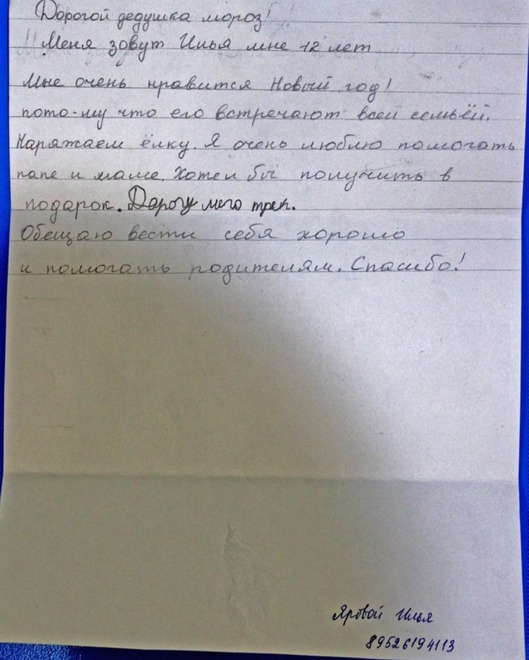 Дорогой дедушка мороз!
Меня зовут Илья мне 12 лет
Мне очень нравится Новый год!
пото-му что его встречают всей семьёй.
Наряжаем ёлку. Я очень люблю помогать
папе и маме. Хотел бы получить в
подарок. Дорогу мега трек.
Обещаю вести себя хорошо
и помогать родителям. Спасибо!
Яровой Илья
89526194113